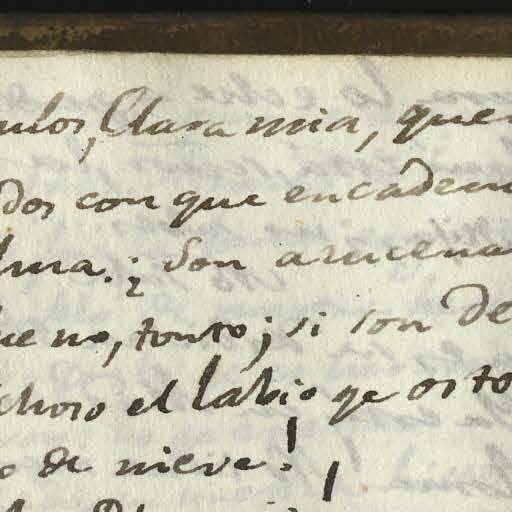 ulos, Clara mia, quer
dos con que encaden
lma. ¿ Son amena
ue no, tonto; si son de
choso el labio qe os to
o de nieve!